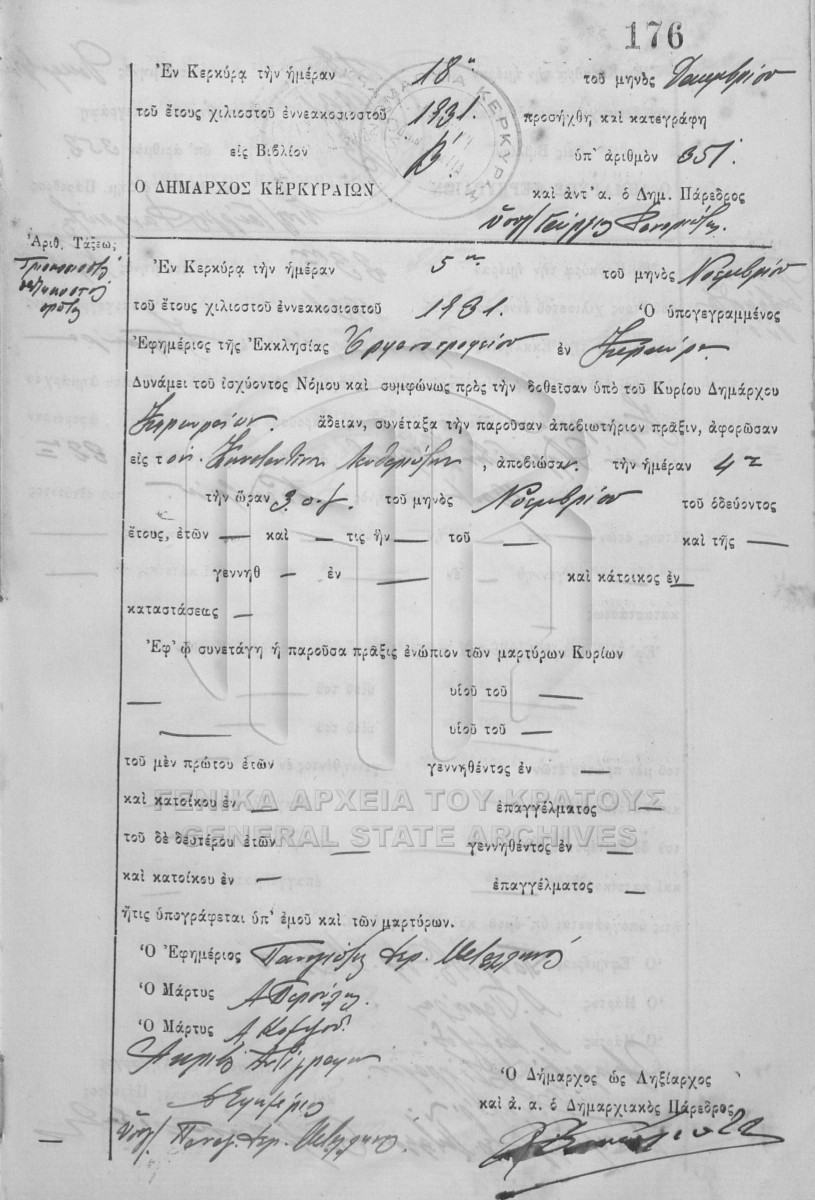 176
Ἐν Κερκύρᾳ τὴν ἡμέραν 18η τοῦ μηνὸς Δεκεμβρίου
τοῦ ἔτους χιλιοστοῦ ἐννεακοσιοστοῦ 1931. προσήχθη καὶ κατεγράφη
εἰς Βιβλίον Β' ὑπ' ἀριθμὸν 351.
Ο ΔΗΜΑΡΧΟΣ ΚΕΡΚΥΡΑΙΩΝ καὶ ἀντ' α. ὁ Δημ. Πάρεδρος
Ἀριθ. Τάξεως
Ἐν Κερκύρᾳ τὴν ἡμέραν 5ην τοῦ μηνὸς Νοεμβρίου
τοῦ ἔτους χιλιοστοῦ ἐννεακοσιοστοῦ 1931. Ὁ ὑπογεγραμμένος
Ἐφημέριος τῆς Ἐκκλησίας ἐν Κερκύρᾳ
Δυνάμει τοῦ ἰσχύοντος Νόμου καὶ συμφώνως πρὸς τὴν δοθεῖσαν ὑπὸ τοῦ Κυρίου Δημάρχου
Κερκυραίων. ἄδειαν, συνέταξα τὴν παροῦσαν ἀποβιωτήριον πρᾶξιν, ἀφορῶσαν
εἰς τὸν Κωνσταντῖνον , ἀποβιώσαν. τὴν ἡμέραν 4ην
τὴν ὥραν 3 τοῦ μηνὸς Νοεμβρίου τοῦ ὁδεύοντος
ἔτους, ἐτῶν — καὶ — τις ἦν — τοῦ — καὶ τῆς —
γεννηθ — ἐν — καὶ κάτοικος ἐν —
καταστάσεως —
Ἐφ' ᾧ συνετάγη ἡ παροῦσα πρᾶξις ἐνώπιον τῶν μαρτύρων Κυρίων
— υἱοῦ τοῦ —
— υἱοῦ τοῦ —
τοῦ μὲν πρώτου ἐτῶν γεννηθέντος ἐν —
καὶ κατοίκου ἐν — ἐπαγγέλματος —
ΓΕΝΙΚΑ ΑΡΧΕΙΑ ΤΟΥ ΚΡΑΤΟΥΣ
GENERAL STATE ARCHIVES
τοῦ δὲ δευτέρου ἐτῶν — γεννηθέντος ἐν —
καὶ κατοίκου ἐν — ἐπαγγέλματος —
ἥτις ὑπογράφεται ὑπ' ἐμοῦ καὶ τῶν μαρτύρων.
Ὁ Ἐφημέριος
Ὁ Μάρτυς Α
Ὁ Μάρτυς Α
Ἀκριβὲς Ἀντίγραφον
Ὁ Ἐφημέριος
Ὁ Δήμαρχος ὡς Ληξίαρχος
καὶ ἀ. α. ὁ Δημαρχιακὸς Πάρεδρος